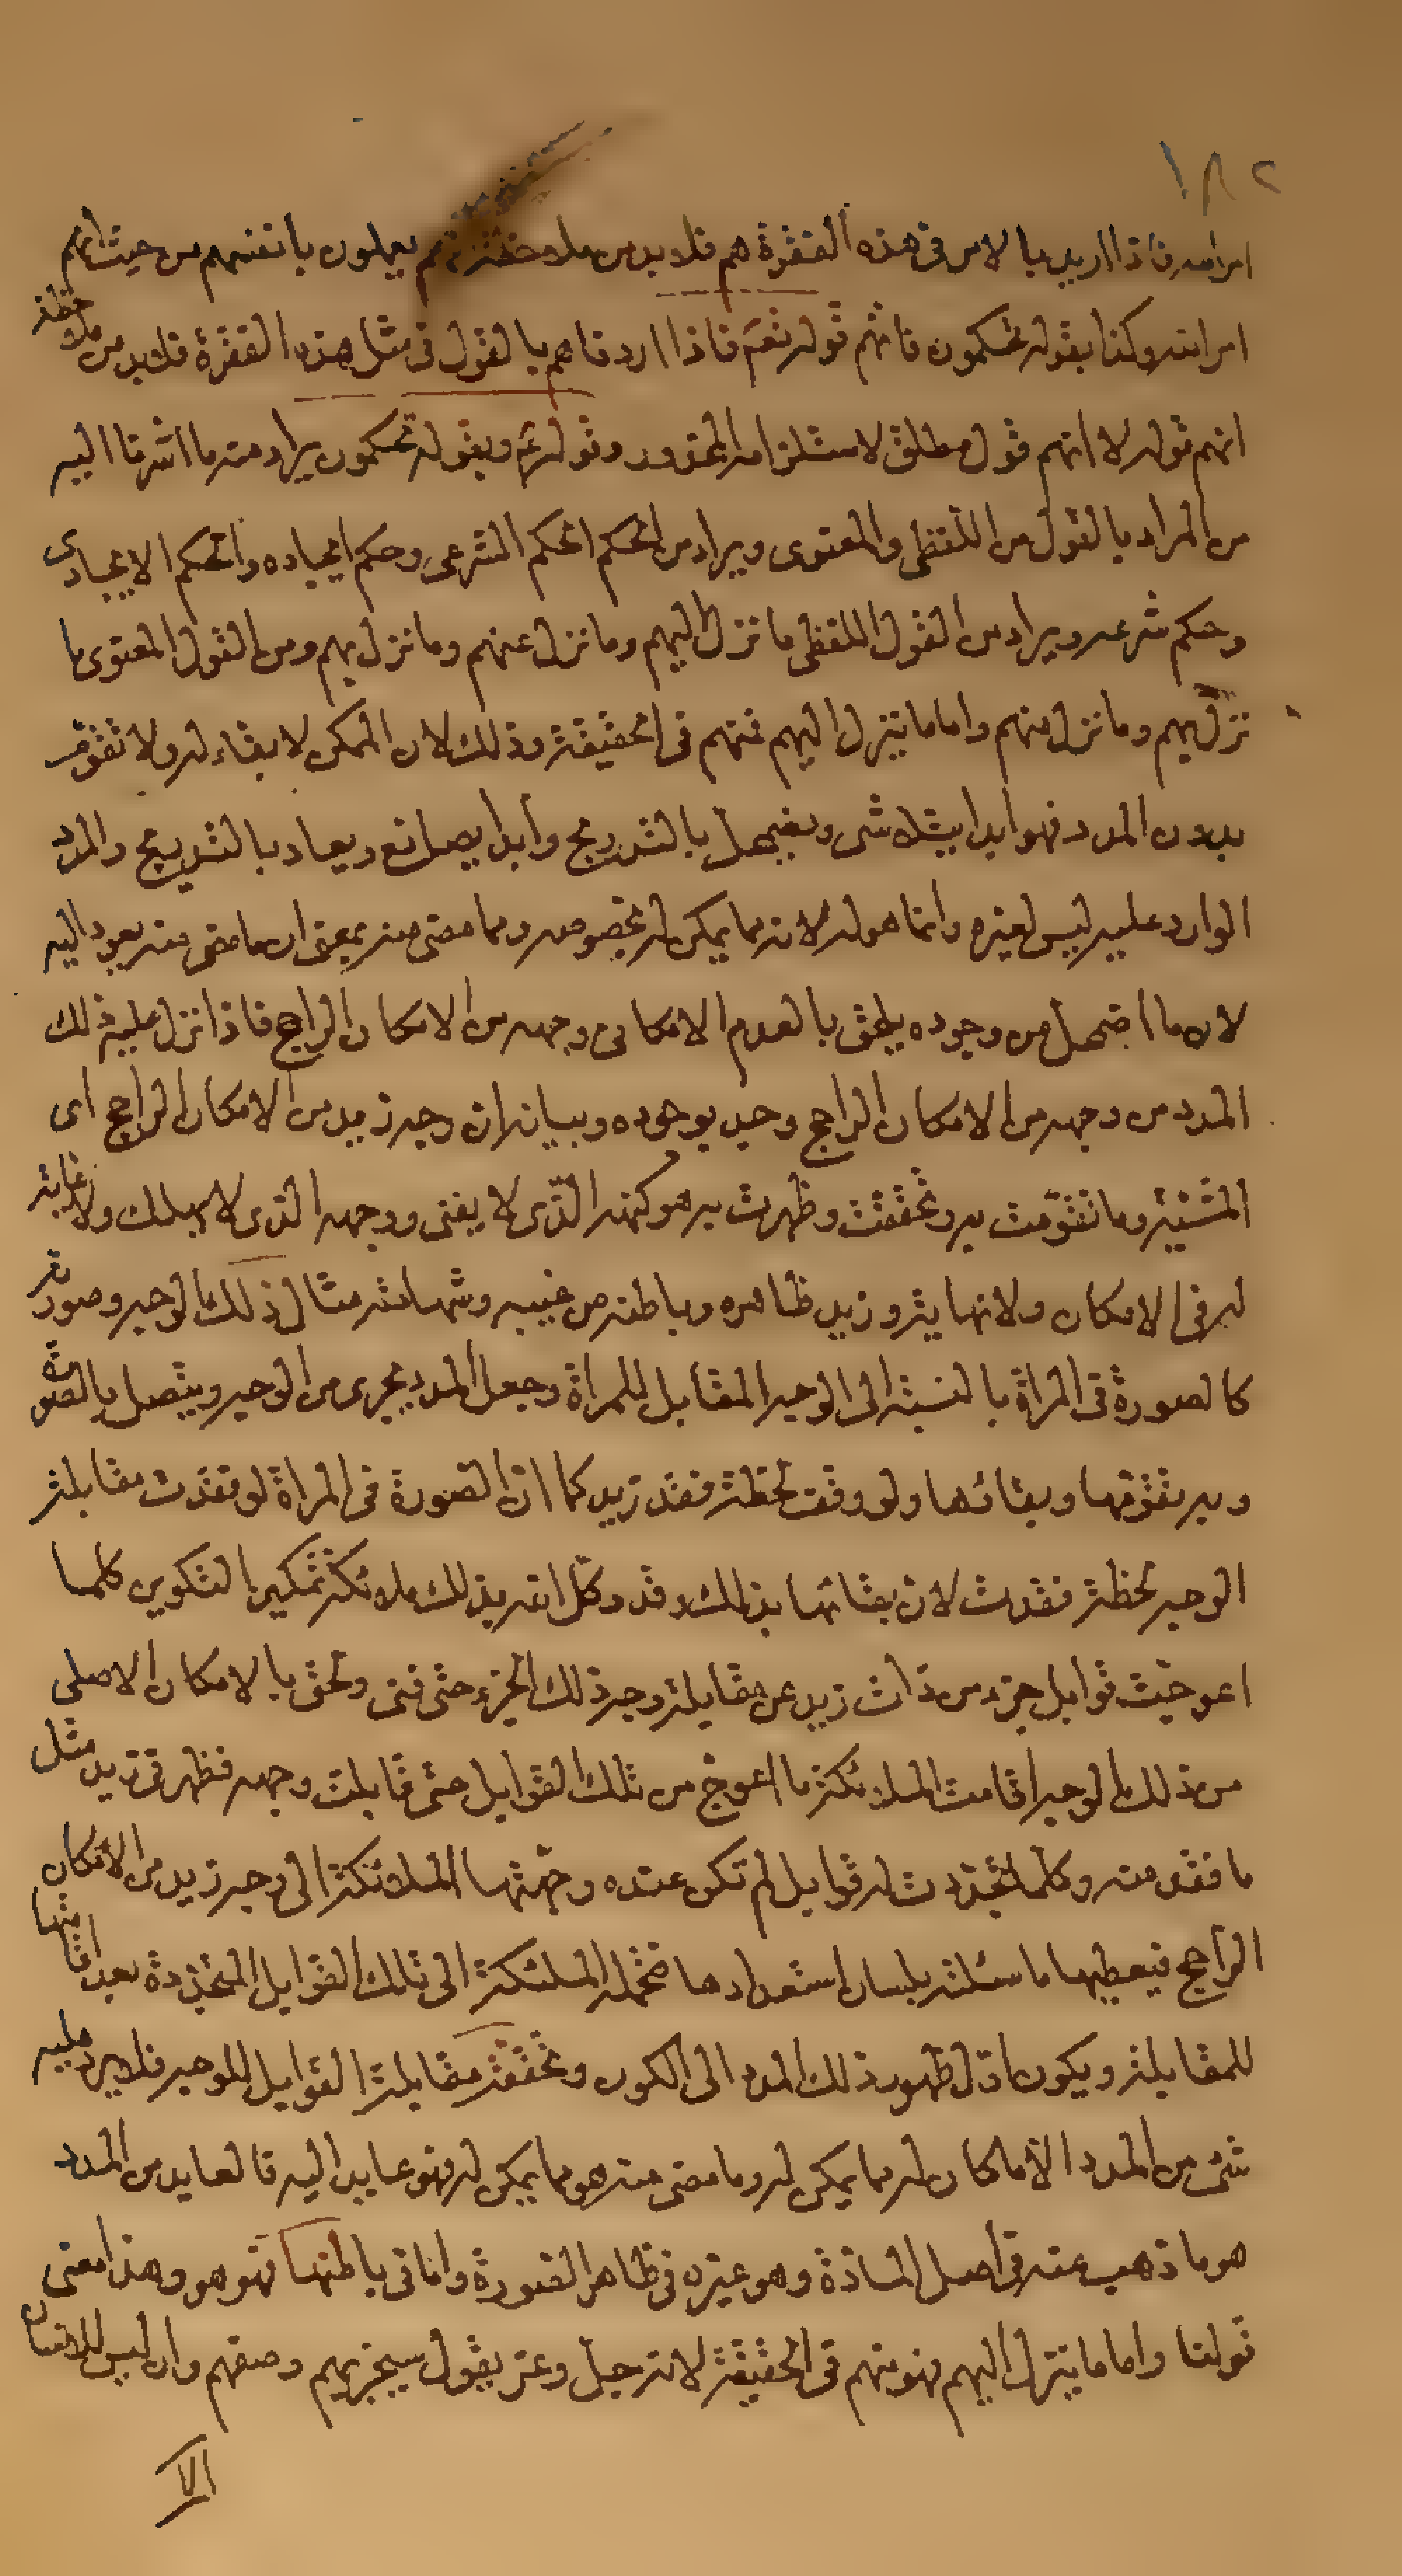 ١٨٢
امر الله فاذا اريد بالامر في هذه الفقرة هم فلا بد من ملاحظة انهم يعملون بانفسهم من حيث انهم
امر الله وكذا بقوله تحكمون فانهم قوله نعم فاذا اردناهم بالقول في مثل هذه الفقرة فلا بد من ملاحظة
انهم قوله لا انهم قول مطلق لاستلزامه المحذور وقوله ع وبقوله تحكمون يراد منه ما اشرنا اليه
من المراد بالقول من اللفظي والمعنوي ويراد من الحكم الحكم الشرعي وحكم ايجاده والحكم الايجادي
وحكم شرعه ويراد من القول اللفظي ما نزل اليهم وما نزل عنهم وما نزل بهم ومن القول المعنوي ما
نزل بهم وما نزل منهم واما ما يتنزل اليهم فمنهم في الحقيقة وذلك لان الممكن لا بقاء له ولا تقوم
بدون المدد فهو ابدا يتلاشى ويضمحل بالتدريج وابدا يصاغ ويعاد بالتدريج والمدد
الوارد عليه ليس لغيره وانما هو له لانه مما يمكن له بخصوصه ومما مضى منه بمعنى ان ما مضى منه يعود اليه
لان ما اضمحل من وجوده يلحق بالعدم الامكاني وجهه من الامكان الراجح فاذا نزل عليه ذلك
المدد من وجهه من الامكان الراجح وجد بوجوده وبيانه ان وجه زيد من الامكان الراجح اي
المشيئة وما تقومت به وتحققت وظهرت به هو كنهه الذي لا يفنى ووجهه الذي لا يهلك ولا غاية
له في الامكان ولا نهاية وزيد ظاهره وباطنه من غيبه وشهادته مثال ذلك الوجه وصورته
كالصورة في المراة بالنسبة الى الوجه المقابل للمراة وجعل المدد يجري من الوجه ويتصل بالصورة
وبه تقومها وبقائها ولو وقف لحظة فقد زيد كما ان الصورة في المراة لو فقدت مقابلة
الوجه لحظة فقدت لان بقائها بذلك وقد وكل الله بذلك ملائكة تمكين التكوين كلما
اعوجت قوابل جزء من ذات زيد عن مقابلة وجه ذلك الجزء حتى فنى ولحق بالامكان الاصلي
من ذلك الوجه اقامت الملائكة ما اعوج من تلك القوابل حتى قابلت وجهه فظهر في زيد مثل
ما فقد منه وكلما تجددت له قوابل لم تكن عنده وجهتها الملائكة الى وجه زيد من الامكان
الراجح فيعطيها ما سئلته بلسان استعدادها فتحمله الملئكة الى تلك القوابل المتجددة بعد اقامتها
للمقابلة ويكون اول ظهور ذلك المدد الى الكون وتحققه مقابلة القوابل للوجه فلا يرد عليه
شئ من المدد الا ما كان له مما يمكن له وما مضى منه هو مما يمكن له فهو عايد اليه فالعايد من المدد
هو ما ذهب عنه في اصل المادة وهو غيره في ظاهر الصورة واما في باطنها فهو هو وهذا معنى
قولنا واما ما يتنزل اليهم فهو منهم في الحقيقة لانه جل وعز يقول سيجزيهم وصفهم وان ليس للانسان
الا